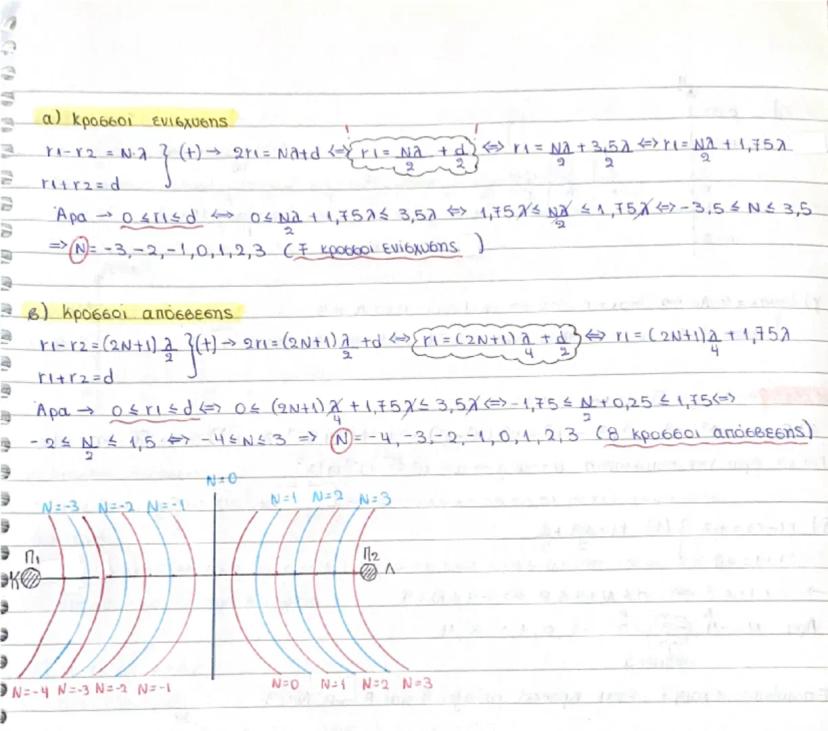 α) κροσσοί ενίσχυσης
r1-r2 = N·λ } (+) → 2r1 = Nλ+d ⇔ r1 = Nλ/2 + d/2 ⇔ r1 = Nλ/2 + 3,5λ/2 ⇔ r1 = Nλ/2 + 1,75λ
r1+r2 = d
Άρα → 0 ≤ r1 ≤ d ⇔ 0 ≤ Nλ/2 + 1,75λ ≤ 3,5λ ⇔ 1,75λ ≤ Nλ/2 ≤ 1,75λ ⇔ -3,5 ≤ N ≤ 3,5
⇒ N = -3,-2,-1,0,1,2,3 (7 κροσσοί ενίσχυσης)
β) κροσσοί απόσβεσης
r1-r2 = (2N+1) λ/2 } (+) → 2r1 = (2N+1) λ/2 + d ⇔ r1 = (2N+1) λ/4 + d/2 ⇔ r1 = (2N+1) λ/4 + 1,75λ
r1+r2 = d
Άρα → 0 ≤ r1 ≤ d ⇔ 0 ≤ (2N+1) λ/4 + 1,75λ ≤ 3,5λ ⇔ -1,75 ≤ N/2 + 0,25 ≤ 1,75 ⇔
-2 ≤ N/2 ≤ 1,5 ⇔ -4 ≤ N ≤ 3 ⇒ N = -4,-3,-2,-1,0,1,2,3 (8 κροσσοί απόσβεσης)
N=0
N=-3 N=-2 N=-1 N=1 N=2 N=3
Π1 Π2
Κ Λ
N=-4 N=-3 N=-2 N=-1 N=0 N=1 N=2 N=3